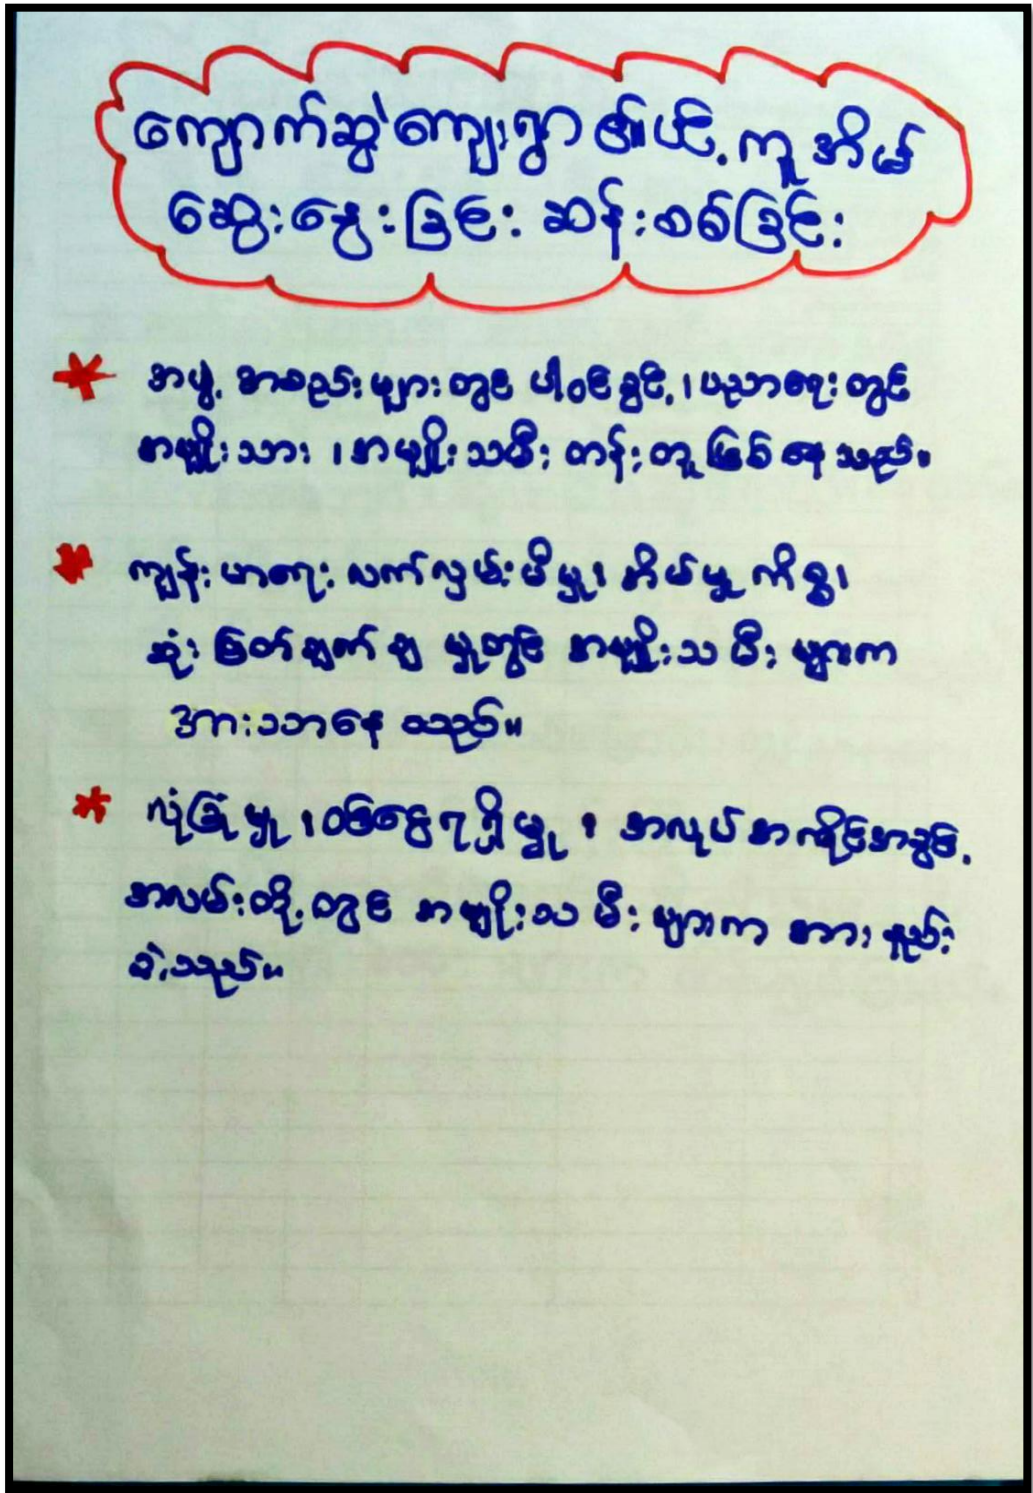 ကျောက်ဆွဲကျေးရွာ၏ပင့်ကူအိမ်
ဆွေးနွေးခြင်း ဆန်းစစ်ခြင်း
အဖွဲ့အစည်းများတွင် ပါဝင်ခွင့်၊ပညာရေးတွင်
အမျိုးသား ၊အမျိုးသမီး တန်းတူဖြစ်နေသည်။
ကျန်းမာရေး လက်လှမ်းမီမှု၊ အိမ်မှုကိစ္စ၊
ဆုံးဖြတ်ချက်ချမှုတွင် အမျိုးသမီးများက
အားသာနေသည်။
လုံခြုံမှု ၊ဝင်ငွေရရှိမှု ၊ အလုပ်အကိုင်အခွင့်
အလမ်းတို့တွင် အမျိုးသမီးများက အားနည်း
ခဲ့သည်။